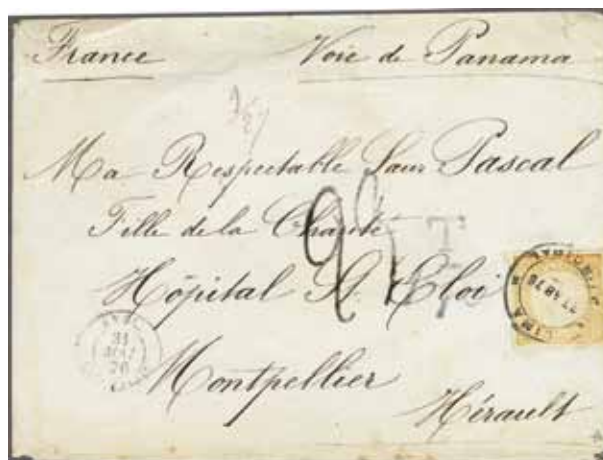 France Voie de Panama
Ma Respectable Sœur Pascal
Fille de la Charité
Hôpital St Eloi
Montpellier
Hérault
LIMA
31
76